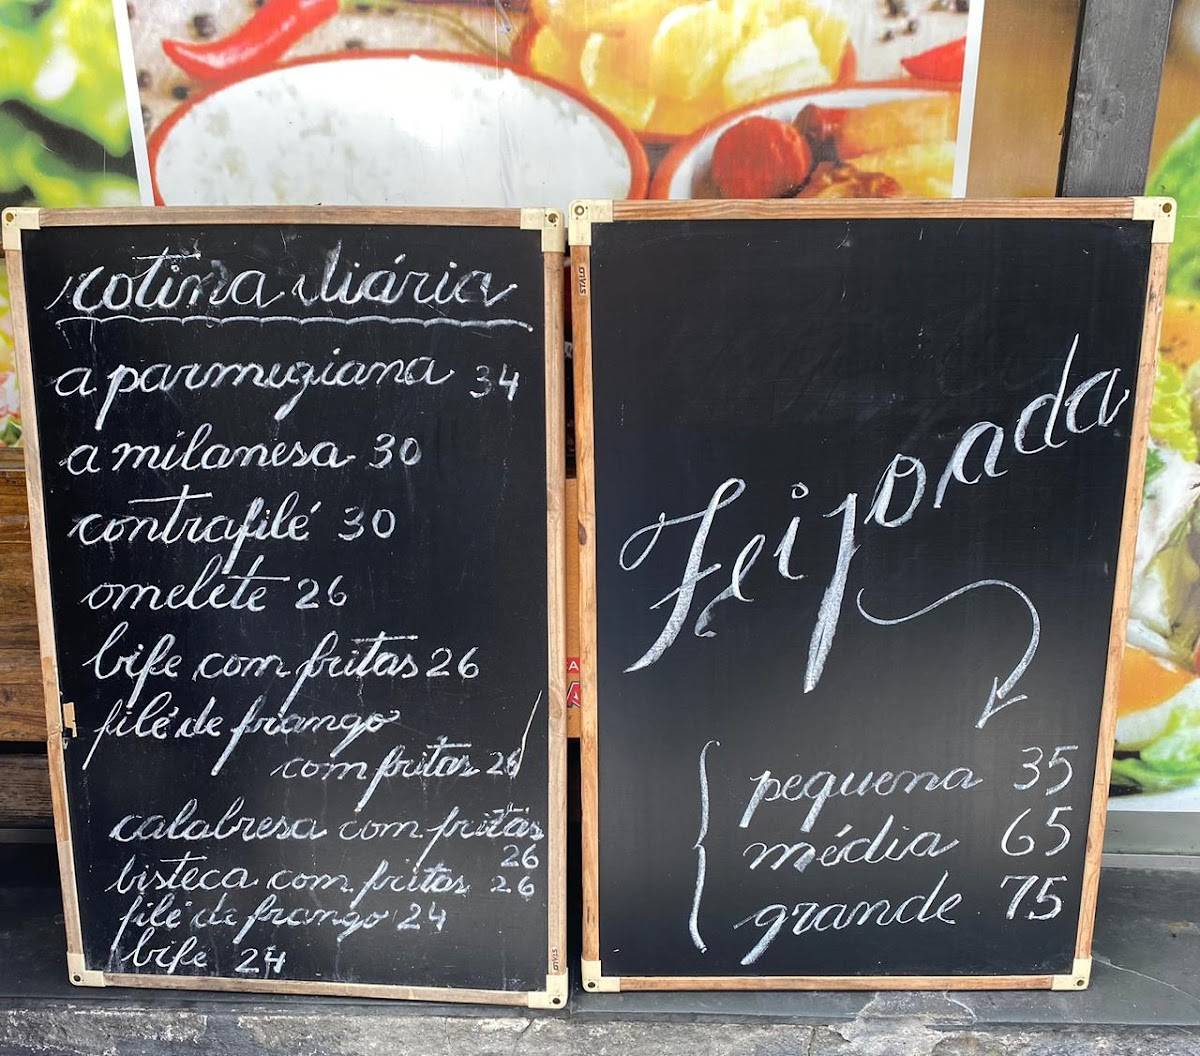 rotina diária
a parmegiana 34
a milanesa 30
contrafilé 30
omelete 26
bife com fritas 26
filé de frango
com fritas 26
calabresa com fritas
26
bisteca com fritas 26
filé de frango 24
bife 24
STALO
Feijoada
pequena 35
média 65
grande 75
STALO